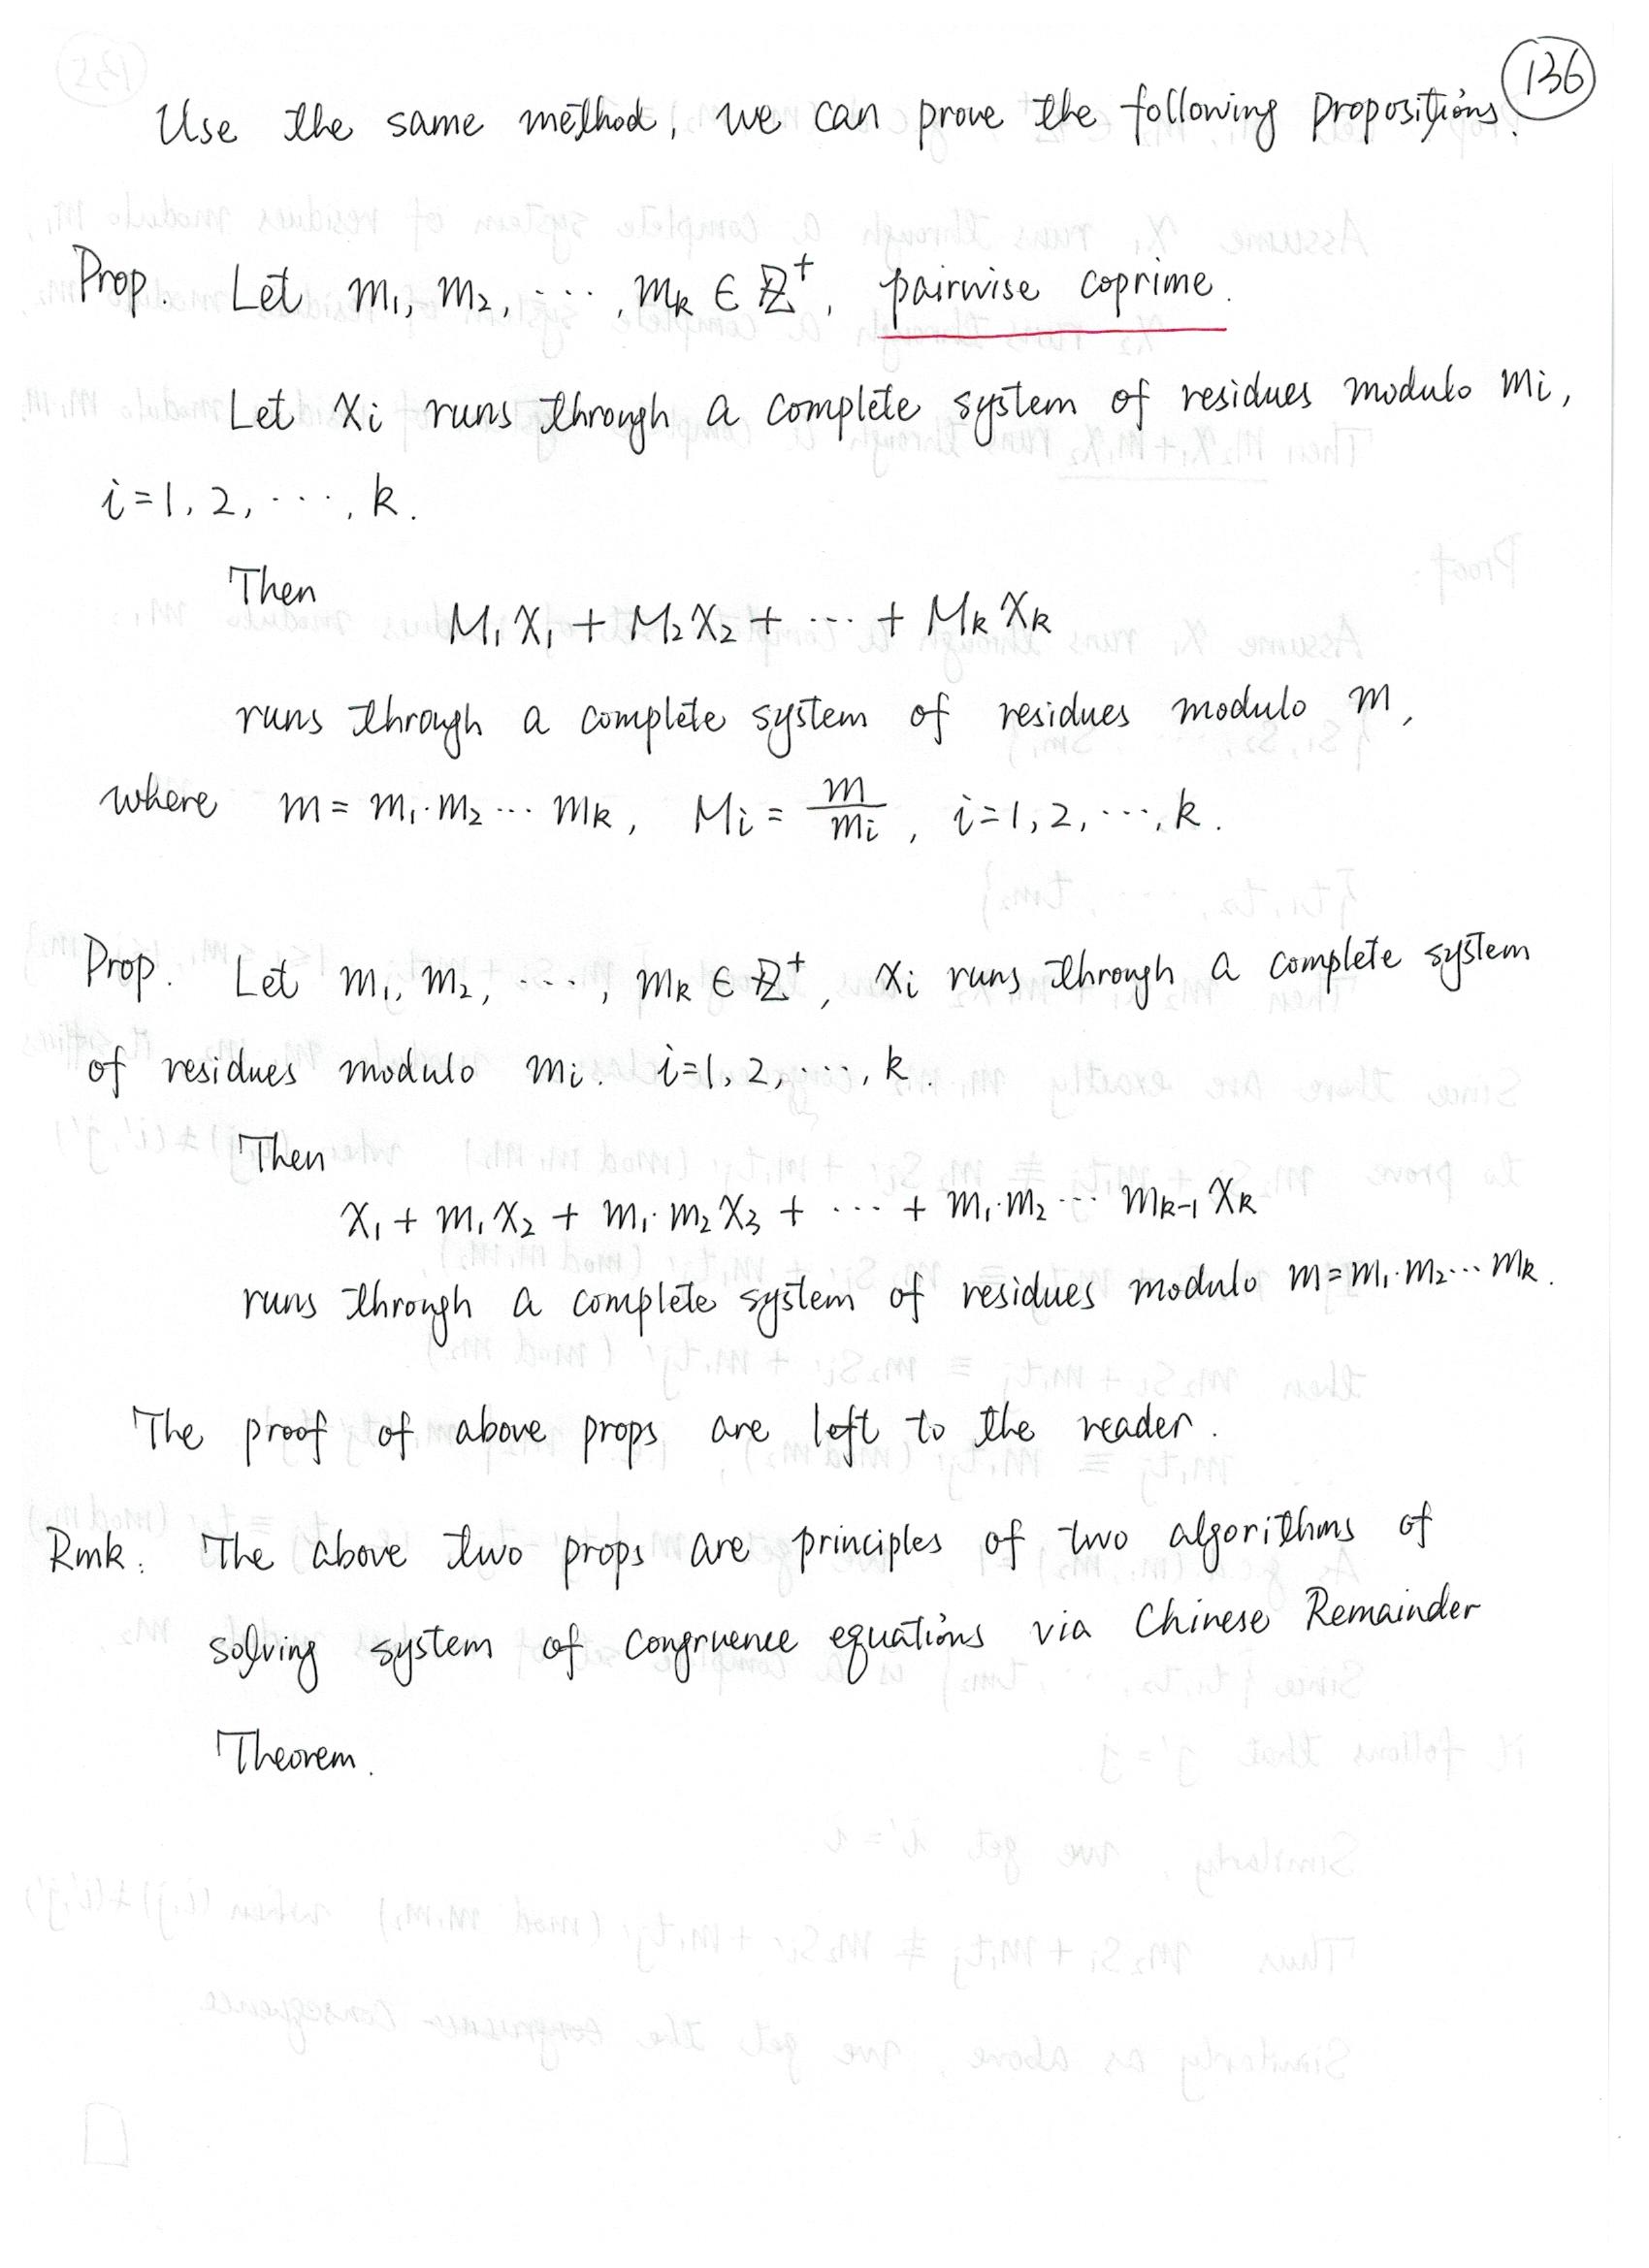 136
Use the same method, we can prove the following propositions.
Prop. Let m₁, m₂, ⋯, mₖ ∈ ℤ⁺, pairwise coprime.
Let xᵢ runs through a complete system of residues modulo mᵢ,
i=1, 2, ⋯, k.
Then
M₁x₁ + M₂x₂ + ⋯ + Mₖxₖ
runs through a complete system of residues modulo m,
where m = m₁·m₂⋯mₖ, Mᵢ = m/mᵢ, i=1, 2, ⋯, k.
Prop. Let m₁, m₂, ⋯, mₖ ∈ ℤ⁺, xᵢ runs through a complete system
of residues modulo mᵢ. i=1, 2, ⋯, k.
Then
x₁ + m₁x₂ + m₁·m₂x₃ + ⋯ + m₁·m₂⋯mₖ₋₁xₖ
runs through a complete system of residues modulo m=m₁·m₂⋯mₖ.
The proof of above props are left to the reader.
Rmk: The above two props are principles of two algorithms of
solving system of congruence equations via Chinese Remainder
Theorem.